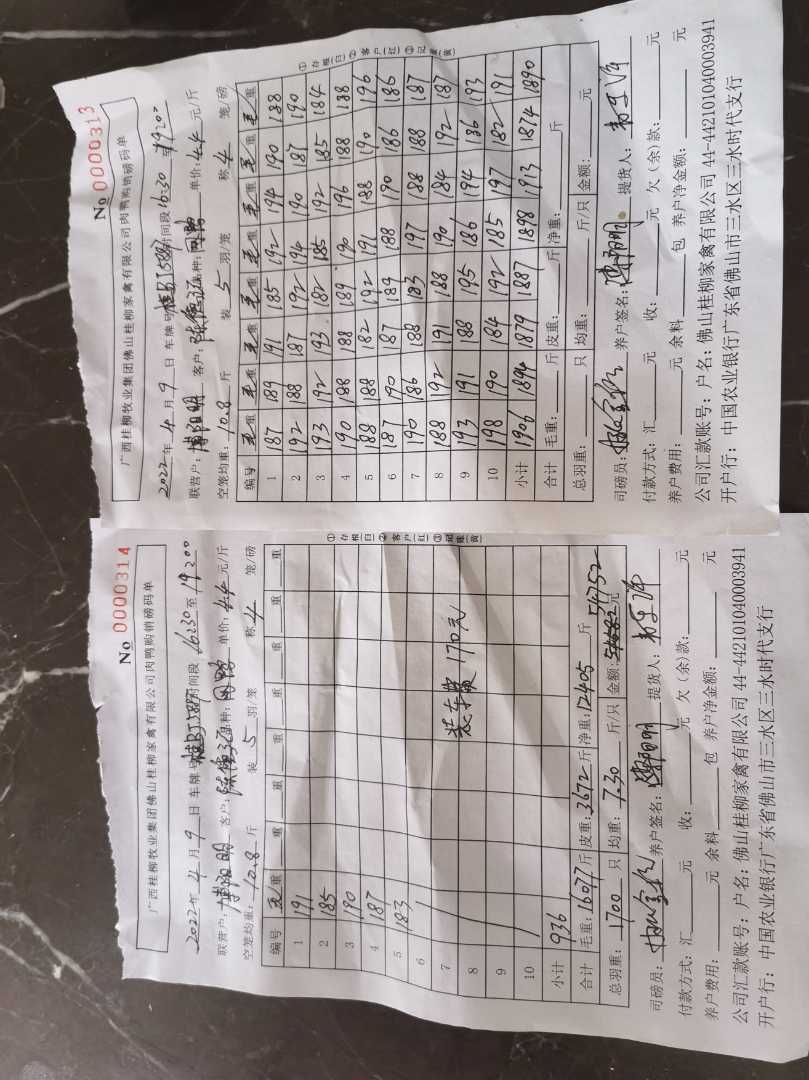 No 0000313
广西桂柳牧业集团佛山桂柳家禽有限公司肉鸭购销磅码单
2022年4月9日 车牌号 时间段16:30至19:00
联营户: 客户: 品种: 单价:4.4元/斤
空笼均重:10.8斤 装5羽/笼 称4笼/磅
编号 毛重 毛重 毛重 毛重 毛重 毛重 毛重 毛重
1 187 189 191 185 192 194 190 188
2 192 188 187 192 194 190 187 190
3 193 192 193 182 185 192 185 184
4 190 188 188 189 190 196 188 188
5 188 188 182 192 191 188 190 196
6 187 190 187 189 188 190 186 186
7 190 186 188 183 197 188 188 187
8 188 192 191 188 190 184 192 187
9 193 191 188 195 186 194 186 193
10 198 190 184 192 185 197 182 191
小计 1906 1894 1879 1887 1898 1913 1874 1890
合计 毛重: 斤 皮重: 斤 净重: 斤
总羽重: 只 均重: 斤/只 金额: 元
①存根(白)②客户(红)③记账(黄)
司磅员: 养户签名: 提货人:
付款方式:汇 元 收: 元 欠(余)款: 元
养户费用: 元 余料 包 养户净金额: 元
公司汇款账号:户名:佛山桂柳家禽有限公司 44-442101040003941
开户行:中国农业银行广东省佛山市三水区三水时代支行
No 0000314
广西桂柳牧业集团佛山桂柳家禽有限公司肉鸭购销磅码单
2022年4月9日 车牌号 时间段16:30至19:00
联营户: 客户: 品种: 单价:4.4元/斤
空笼均重:10.8斤 装5羽/笼 称4笼/磅
编号 毛重 重 重 重 重 重 重 重
1 191
2 185
3 190
4 187
5 183
6
7
8 装车费170元
9
10
小计 936
合计 毛重:16077斤 皮重:3672斤 净重:12405斤
总羽重:1700只 均重:7.30斤/只 金额:54752元
①存根(白)②客户(红)③记账(黄)
司磅员: 养户签名: 提货人:
付款方式:汇 元 收: 元 欠(余)款: 元
养户费用: 元 余料 包 养户净金额: 元
公司汇款账号:户名:佛山桂柳家禽有限公司 44-442101040003941
开户行:中国农业银行广东省佛山市三水区三水时代支行